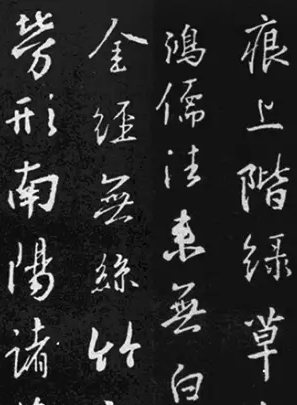 痕上階綠草
鴻儒往來無白
金經無絲竹
勞形南陽諸